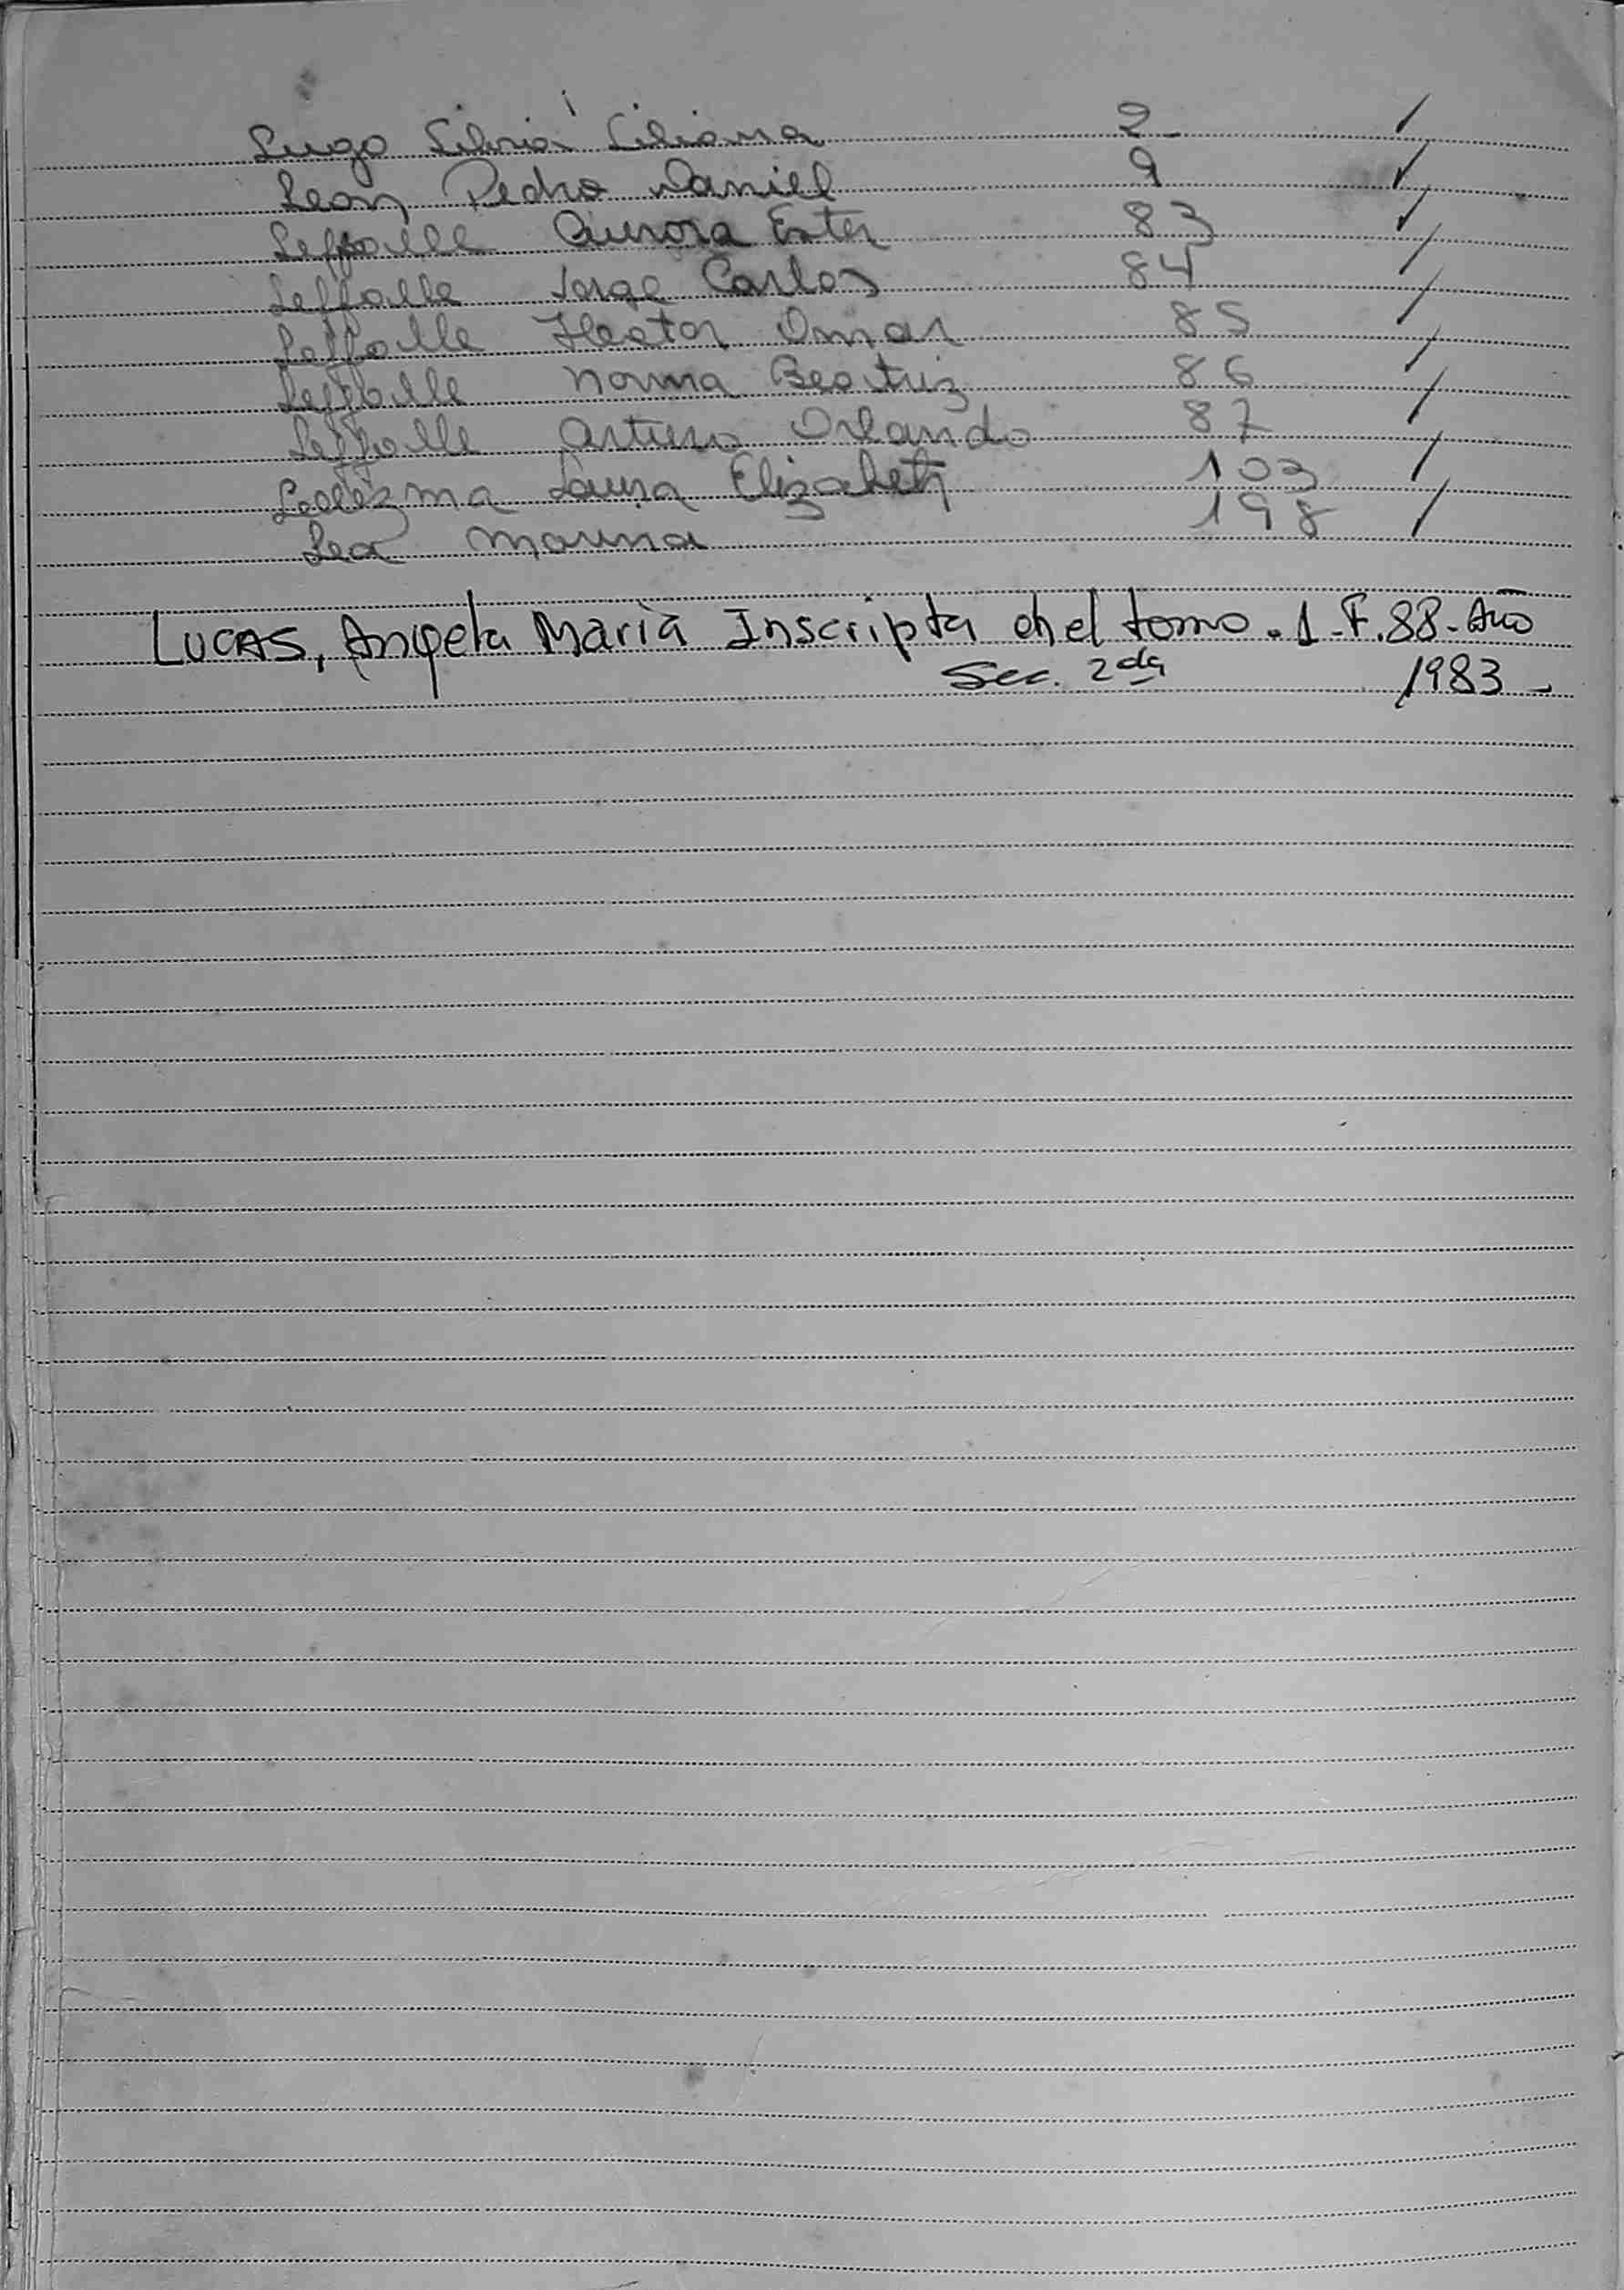 Lugo Silvia Liliana 2-
Leon Pedro Daniel 9
Leffalle Aurora Ester 83
Leffalle Jorge Carlos 84
Leffalle Hector Omar 85
Leffalle Norma Beatriz 86
Leffalle Arturo Orlando 87
Ledezma Laura Elizabeth 103
Lea Marina 198
LUCAS, Angela Maria Inscripta en el tomo. 1-F.88-Año
Sec. 2da 1983-